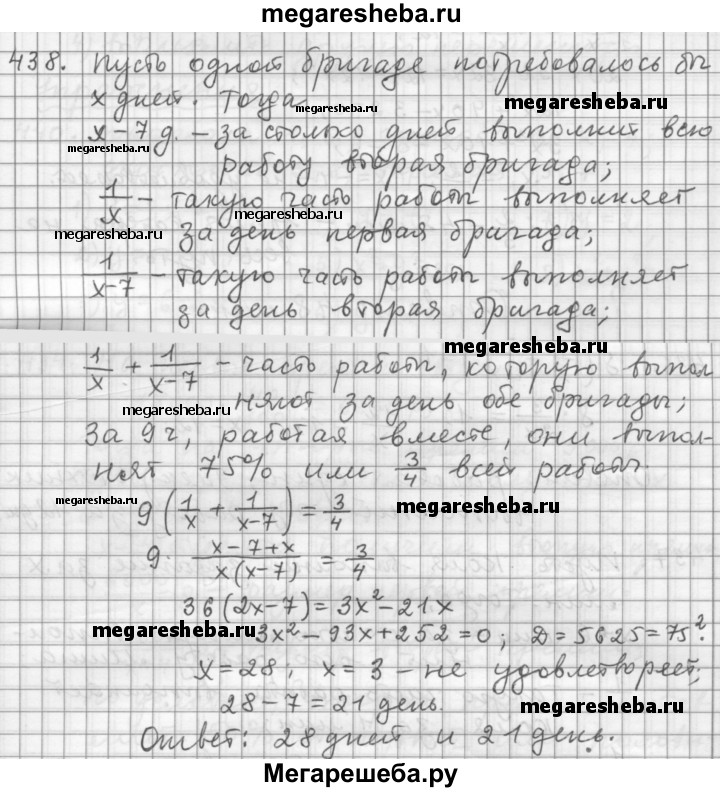 megaresheba.ru
438. Пусть одной бригаде потребовалось бы
x дней. Тогда
megaresheba.ru
megaresheba.ru
x-7 д. - за столько дней выполнит всю
megaresheba.ru
работу вторая бригада;
1/x - такую часть работы выполняет
megaresheba.ru
megaresheba.ru
за день первая бригада;
1/(x-7) - такую часть работы выполняет
за день вторая бригада;
megaresheba.ru
1/x + 1/(x-7) - часть работы, которую выпол
megaresheba.ru
няют за день обе бригады;
За 9 ч, работая вместе, они выпол-
нят 75% или 3/4 всей работы.
megaresheba.ru
9(1/x + 1/(x-7)) = 3/4
megaresheba.ru
9· (x-7+x)/(x(x-7)) = 3/4
36(2x-7)=3x²-21x
megaresheba.ru
3x²-93x+252=0; D=5625=75².
x=28; x=3 - не удовлетворяет;
28-7=21 день.
megaresheba.ru
Ответ: 28 дней и 21 день.
Мегарешеба.ру